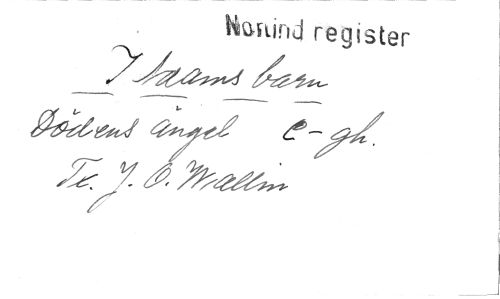 Nonind register
I Adams barn
Dödens ängel C-gh.
Tx. J. O. Wallin